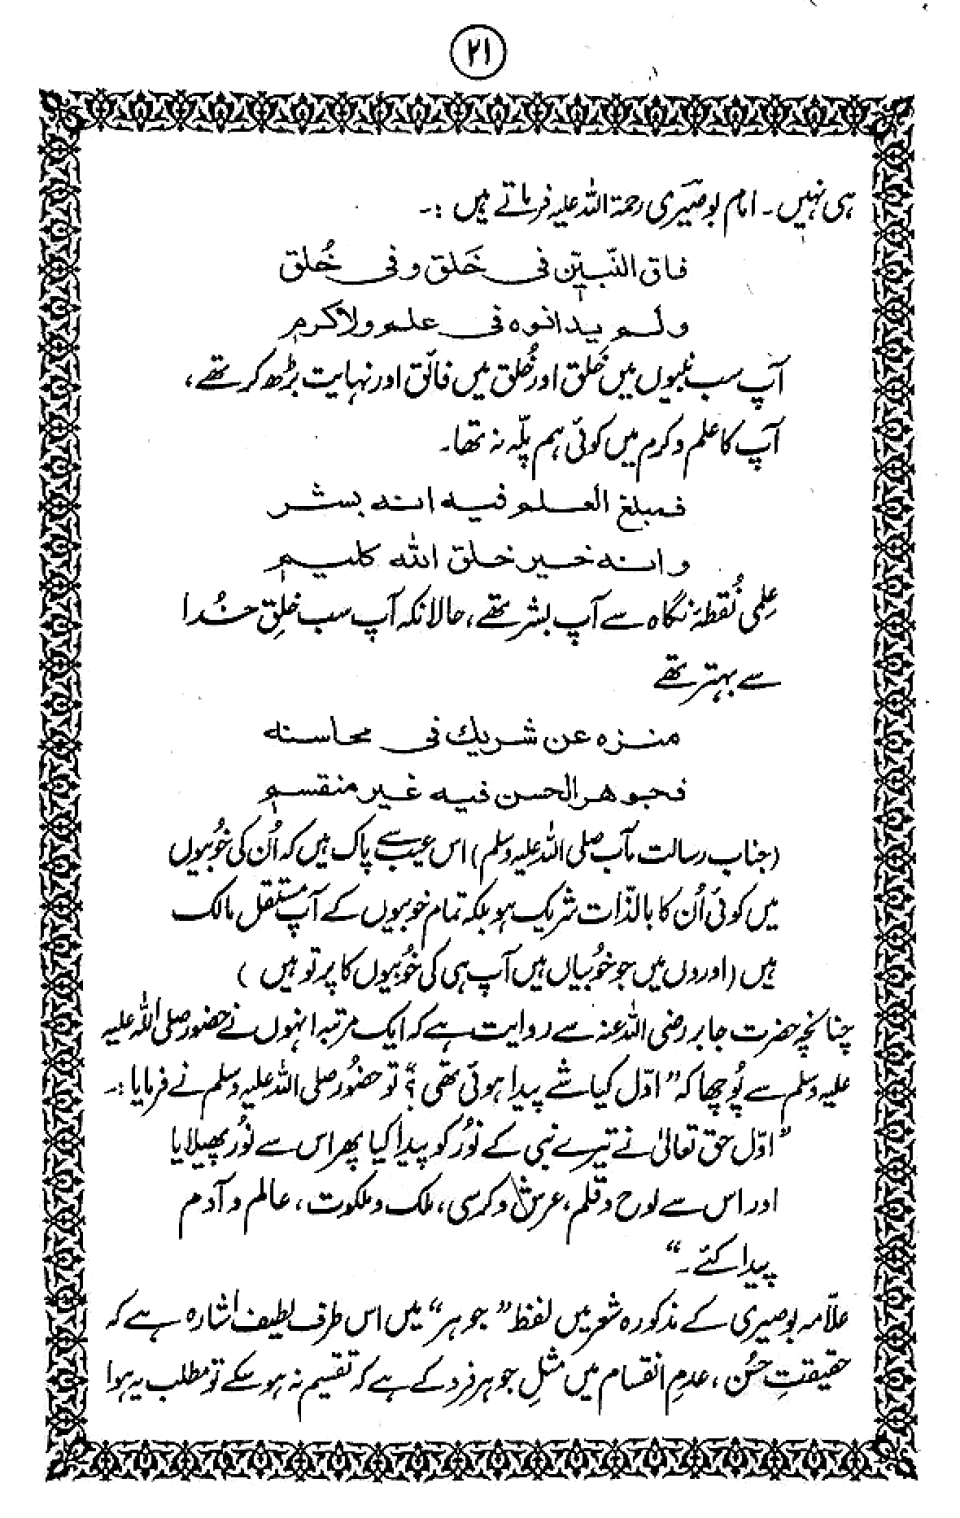 ۲۱
ہی نہیں۔ امام بوصیری رحمۃ اللہ علیہ فرماتے ہیں :۔
فاق النبیّن فی خَلق و فی خُلق
ولم یدانوہ فی علم ولا کرم
آپ سب نبیوں میں خَلق اور خُلق میں فائق اور نہایت بڑھ کر تھے،
آپ کا علم و کرم میں کوئی ہم پلّہ نہ تھا۔
فمبلغ العلم فیہ انہ بشر
وانہ خیر خلق اللہ کلیم
علمی نُقطۂ نگاہ سے آپ بشر تھے، حالانکہ آپ سب خلقِ خُدا
سے بہتر تھے
منزہ عن شریك فی محاسنہ
فجوھر الحسن فیہ غیر منقسم
(جناب رسالت مآب صلی اللہ علیہ وسلم) اس عیب سے پاک ہیں کہ اُن کی خُوبیوں
میں کوئی اُن کا بالذّات شریک ہو بلکہ تمام خوبیوں کے آپ مستقل مالک
ہیں (اوروں میں جو خُوبیاں ہیں آپ ہی کی خُوبیوں کا پرتو ہیں )
چنانچہ حضرت جابر رضی اللہ عنہ سے روایت ہے کہ ایک مرتبہ انہوں نے حضور صلی اللہ علیہ
علیہ وسلم سے پُوچھا کہ " اوّل کیا شے پیدا ہوئی تھی؟ تو حضُور صلی اللہ علیہ وسلم نے فرمایا :۔
" اوّل حق تعالیٰ نے تیرے نبی کے نُور کو پیدا کیا پھر اس سے نُور پھیلایا
اور اس سے لوح و قلم، عرش و کرسی، ملک و ملکوت، عالم و آدم
پیدا کئے۔"
علّامہ بوصیری کے مذکورہ شعر میں لفظ "جوہر" میں اس طرف لطیف اشارہ ہے کہ
حقیقتِ حُسن، عدمِ انقسام میں مثلِ جوہر فرد کے ہے کہ تقسیم نہ ہو سکے تو مطلب یہ ہوا